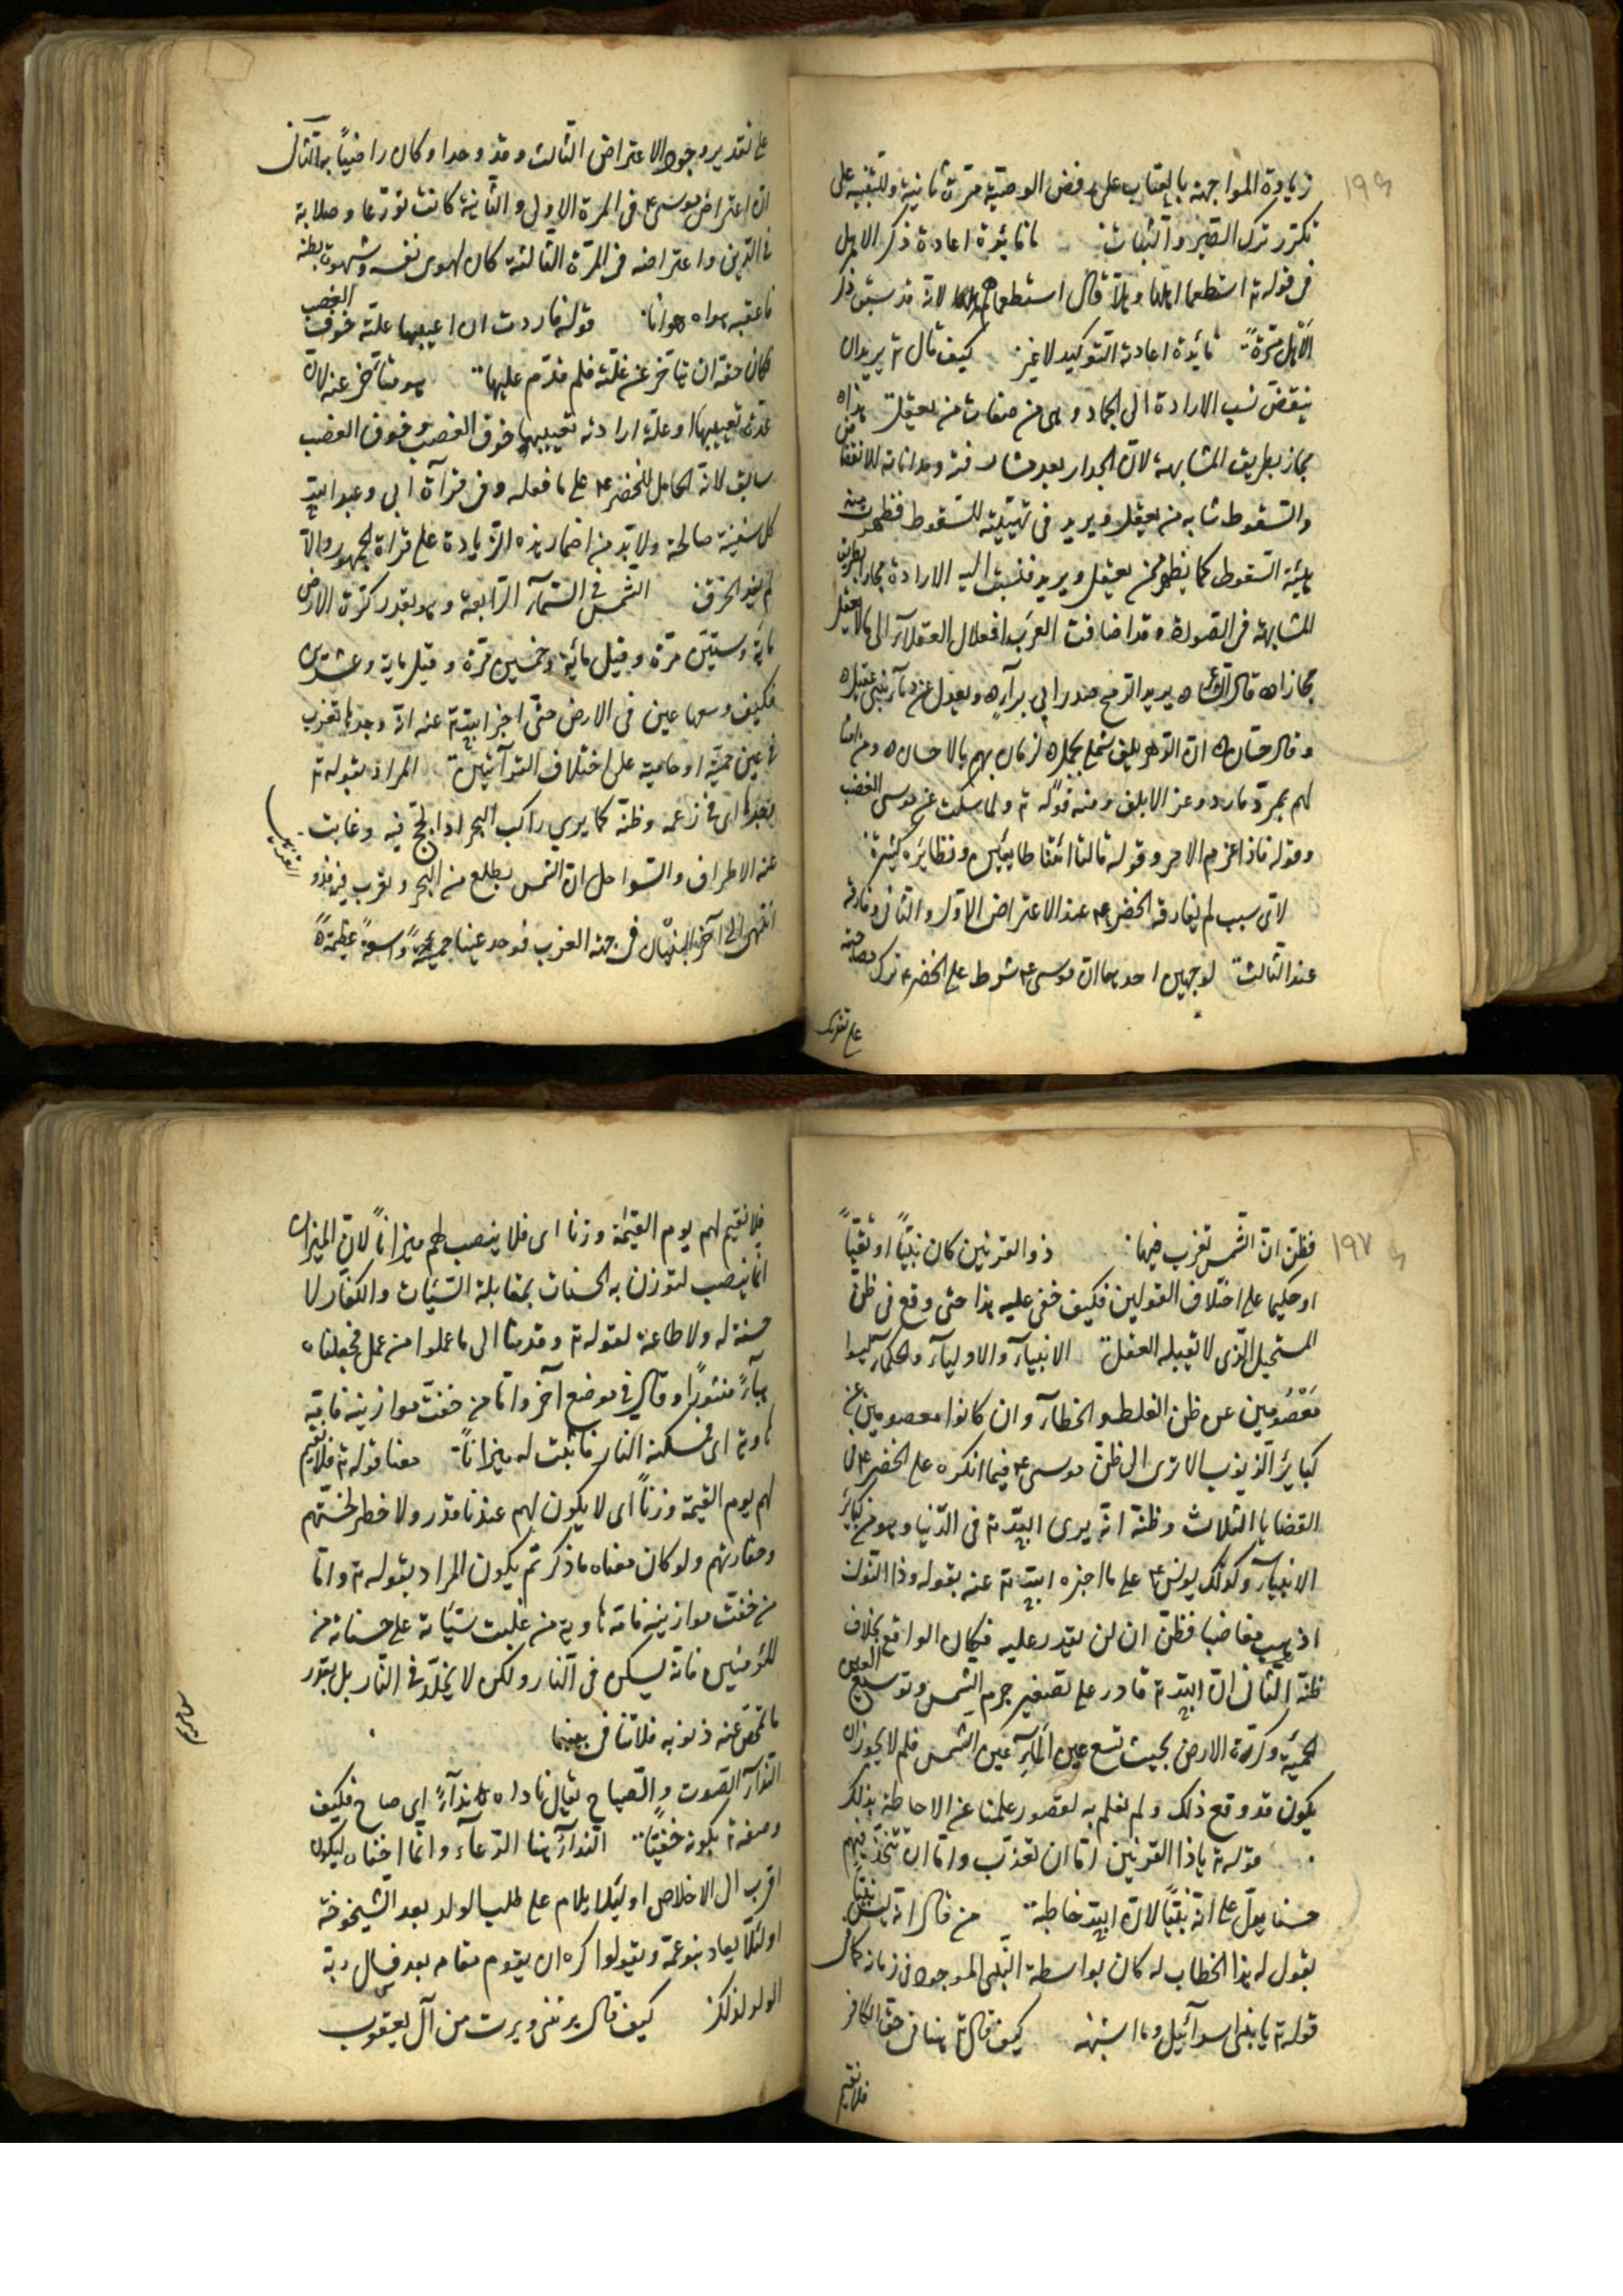 ١٩٦
زيادة المواجهة بالعتاب على رفض الوصية مرّة ثانية وللتنبيه على
تكرّر ترك الصّبر والثّبات ما فائدة اعادة ذكر الاهل
فى قوله تع استطعما اهلها وهلّا قال استطعماهم لانه قد سبق ذكر
الاهل مرّة فائدة اعادته التوكيد لا غير كيف قال تع يريد ان
ينقضّ نسب الارادة الى الجماد وهى من صفات من يعقل هذا
مجاز بطريق المشابهة لانّ الجدار بعد مشارفته ومداناته للانقضاض
والسّقوط شابه من يعقل ويريد فى تهيّئه للسّقوط فظهرت منه
هيئة السّقوط كما يظهر ممّن يعقل ويريد فنسبت اليه الارادة مجازا بطريق
المشابهة فى الصورة وقد اضافت العرب افعال العقلاء الى ما لا يعقل
مجازا قال الشاعر يريد الرّمح صدر ابى براء ويعدل عن دماء بنى عقيل
وقال حسّان انّ الدّهر يلفّ شملى بجمل لزمان يهمّ بالاحسان ومن امثالهم
تمرّد مارد وعزّ الابلق ومنه قوله تع ولمّا سكت عن موسى الغضب
وقوله فاذا عزم الامر وقوله قالتا اتينا طائعين ونظائره كثيرة
لاىّ سبب لم يفارقه الخضر ع عند الاعتراض الاوّل والثانى وفارقه
عند الثالث لوجهين احدهما انّ موسى ع شرط على الخضر ع ترك مصاحبته
على تقدير
على تقدير وجود الاعتراض الثّالث وقد وجدا وكان راضياً به الثّانى
انّ اعتراض موسى ع فى المرة الاولى والثّانية كانت تورّعا وصلابة
فى الدّين واعتراضه فى المرّة الثالثة كان لهوى نفسه وشهوت بطنه
فاعقبه هواه هوانا قوله فاردت ان اعيبها علّته خوف الغصب
فكان حقّه ان يتاخّر عن علّته فلم قدّم عليها هو متأخّر عنه لانّ
علّة تعييبها او علّة ارادته تعييبها خوف الغصب وخوف الغصب
سابق لانّه الحامل للخضر ع على ما فعله وفى قرآءة ابى وعبد الله
كل سفينة صالحة ولا بدّ من اضمار هذه الزّيادة على قراة الجمهور والّا
لم يفد الخرق الشّمس فى السّمآء الرّابعة وهو بقدر كرّة الارض
مأية وستّين مرّة وقيل مائة وخمسين مرّة وقيل ماية وعشرين
فكيف وسعها عين فى الارض حتّى اخبر الله تع عنه انه وجدها تغرب
فى عين حمئة او حامية على اختلاف القرآئتين المراد بقوله تع
وجدها اى فى زعمه وظنّه كما يرى راكب البحر اذا لجّ فيه وغابت
عنه الاطراف والسّواحل انّ الشّمس يطلع من البحر ويغرب فيه
انتهى الى آخر البنيان فى جهة الغرب فوجد عينا حمئة واسعة عظيمة
١٩٧
فظنّ انّ الشّمس تغرب فيها ذو القرنين كان نبيّاً او تقيّاً
او حكيما على اختلاف القولين فكيف خفى عليه هذا حتّى وقع فى ظنّ
المستحيل الّذى لا يقبله العقل الانبيآء والاوليآء والحكمآء ليسوا
معصومين عن ظنّ الغلط والخطآء وان كانوا معصومين عن
كباير الذّنوب الا ترى الى ظنّ موسى ع فيما انكره على الخضر ع فى
القضايا الثلاث وظنّه انّه يرى الله تع فى الدّنيا وهو من كبار
الانبيآء وكذلك يونس ع على ما اخبره الله تع عنه بقوله وذا النّون
اذ ذهب مغاضبا فظنّ ان لن نقدر عليه فكان الواقع بخلاف
ظنّه الثانى انّ الله تع قادر على تصغير جرم الشّمس وتوسيع العين
الحمئة وكرة الارض بحيث تسع عين المآء عين الشّمس فلم لا يجوز ان
يكون قد وقع ذلك ولم نعلم به لقصور علمنا عن الاحاطة بذلك
قوله تع يا ذا القرنين امّا ان تعذّب وامّا ان تتّخذ فيهم
حسنا يدلّ على انّه نبيّاً لانّ الله خاطبه من قال انّه ليس نبيّاً
يقول له هذا الخطاب له كان بواسطة النّبى الموجود فى زمانه كما فى
قوله تع يا بنى اسرآئيل وما اشبهه كيف قال تع هنا فى حقّ الكافر
فلا نقيم
فلا نقيم لهم يوم القيمة وزنا اى فلا ينصب لهم ميزاناً لانّ الميزان
انّما ينصب لتوزن به الحسنات بمقابلة السّيّات والكفار لا
حسنة له ولا طاعة لقوله تع وقدمنا الى ما عملوا من عمل فجعلناه
هبآءً منثوراً وقال فى موضع آخر وامّا من خفّت موازينه فامّه
هاوية اى فمسكنه النار فاثبت له ميزاناً معنا قوله تع فلا نقيم
لهم يوم القيمة وزناً اى لا يكون لهم عندنا قدر ولا خطر لخسّتهم
وحقارتهم ولو كان معناه ما ذكر ثم يكون المراد بقوله تع وامّا
من خفّت موازينه فامّه هاوية من غلبت سيّاته على حسناته من
المؤمنين فانّه يسكن فى النّار ولكن لا يخلّد فى النّار بل بقدر
ما تمحّص عنه ذنوبه فلا تنافى بينهما
سورة مريم
النّدآء الصّوت والصّياح يقال ناداه ندآءً اى صاح فكيف
وصفه تع بكونه خفيّاً النّدآء هنا الدّعآء وانّما اخفاه ليكون
اقرب الى الاخلاص او لئلّا يلام على طلب الولد بعد الشّيخوخة
او لئلّا يعاديه بنو عمّه ويقولوا كره ان يقوم مقامه بعد فسال ربّه
الولد لذلك كيف قال يرثنى ويرث من آل يعقوب